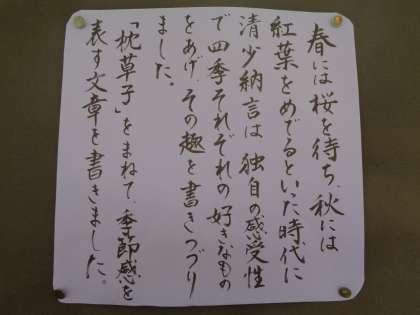 春には桜を待ち、秋には
紅葉をめでるといった時代に
清少納言は独自の感受性
で四季それぞれの好きなもの
をあげ、その趣を書きつづり
ました。
「枕草子」をまねて、季節感を
表す文章を書きました。